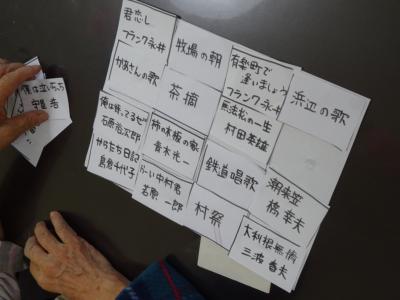 君恋し
フランク永井
かあさんの歌
俺は待ってるぜ
石原裕次郎
からたち日記
島倉千代子
牧場の朝
茶摘
柿の木坂の家
青木光一
おーい中村君
若原一郎
有楽町で
逢いましょう
フランク永井
無法松の一生
村田英雄
鉄道唱歌
村祭
浜辺の歌
潮来笠
橋幸夫
大利根無情
三波春夫
俺は泣いちっち
守屋浩